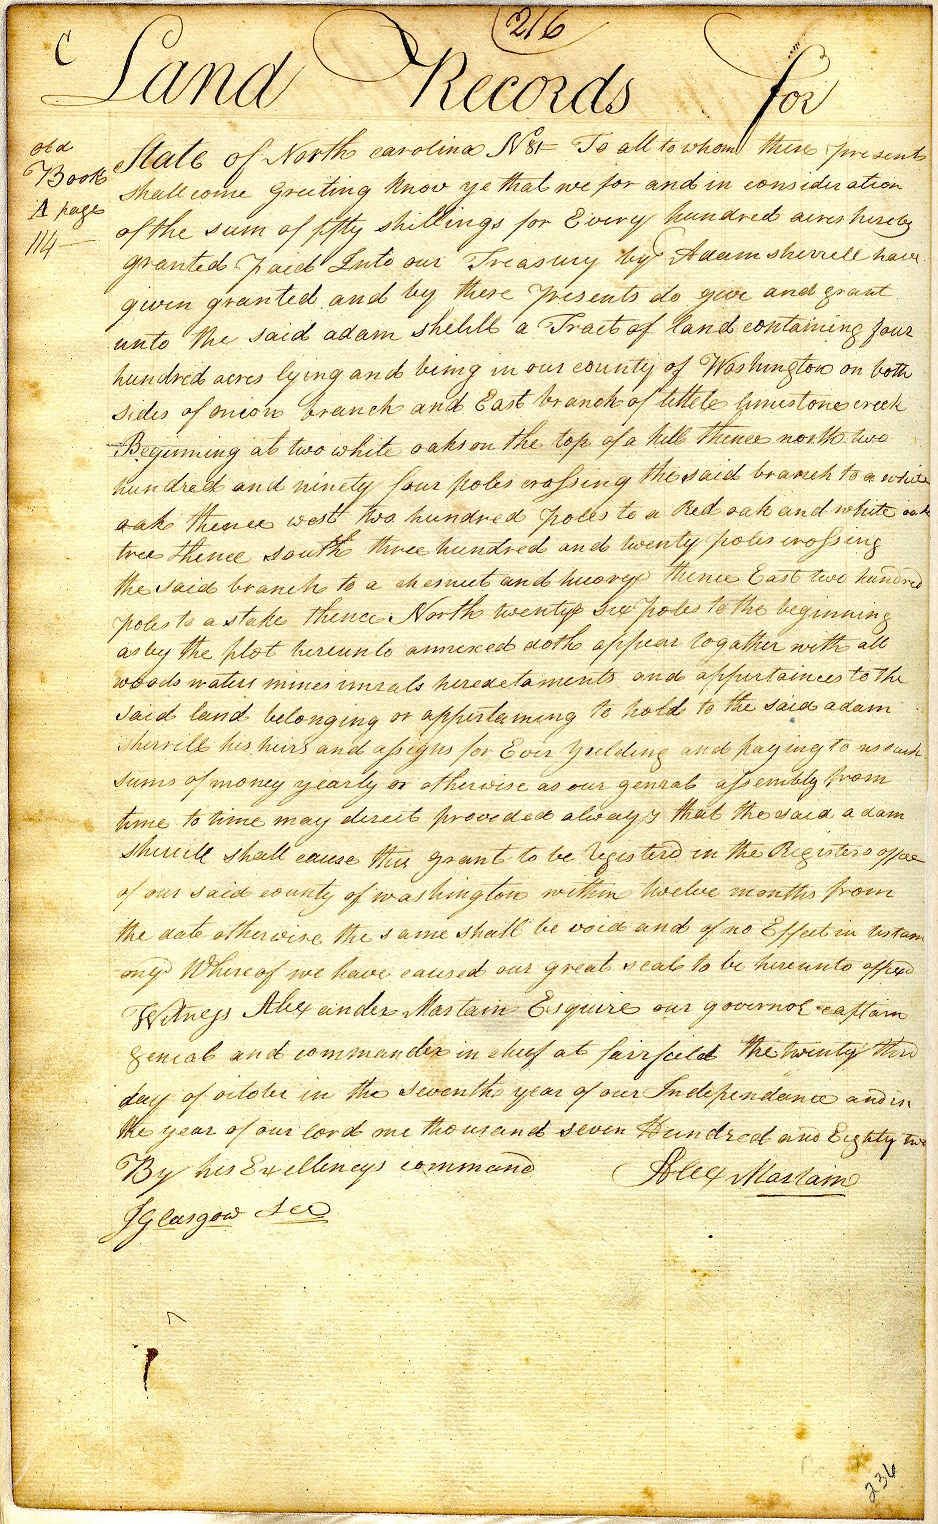 216
C Land Records for
old
Book
A page
114
State of North carolina N 81 To all to whom these presents
shall come Greeting know ye that we for and in consideration
of the sum of fifty shillings for Every hundred acres hereby
granted paid Into our Treasury by Adam sherrell have
given granted and by these presents do give and grant
unto the said adam shelill a Tract of land containing four
hundred acres lying and being in our county of Washington on both
sides of onion branch and East branch of littele limestone creek
Beginning at two white oaks on the top of a hill thence north two
hundred and ninety four poles crossing the said branch to a white
oak thence west two hundred poles to a Red oak and white oak
tree thence south three hundred and twenty poles crossing
the said branch to a chesnut and hicory thence East two hundred
poles to a stake thence North twenty six poles to the beginning
as by the plot hereunto annexed doth appear together with all
woods waters mines minrals heredetaments and appertainces to the
said land belonging or appertaining to hold to the said adam
sherrill his heirs and assigns for Ever yielding and paying to us such
sums of money yearly or otherwise as our genral assembly from
time to time may direct provided always that the said adam
sherrill shall cause this grant to be registerd in the Registers office
of our said county of washington within twelve months from
the date otherwise the same shall be void and of no Effect in testam
ony Whereof we have caused our great seal to be hereunto affixd
Witness Alexander Martain Esquire our governor captain
genral and commander in cheef at fairfield the twenty third
day of octobr in the seventh year of our Independance and in
the year of our lord one thousand seven Hundred and Eighty two
By his Exellencys command Alex Martain
J Glasgow Sec
236